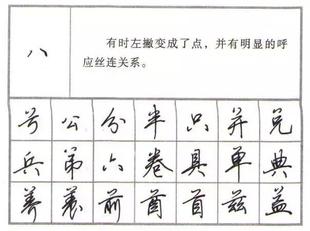 八
有时左撇变成了点，并有明显的呼
应丝连关系。
兮 公 分 半 只 并 兑
兵 第 六 卷 具 单 典
善 前 酋 首 兹 益